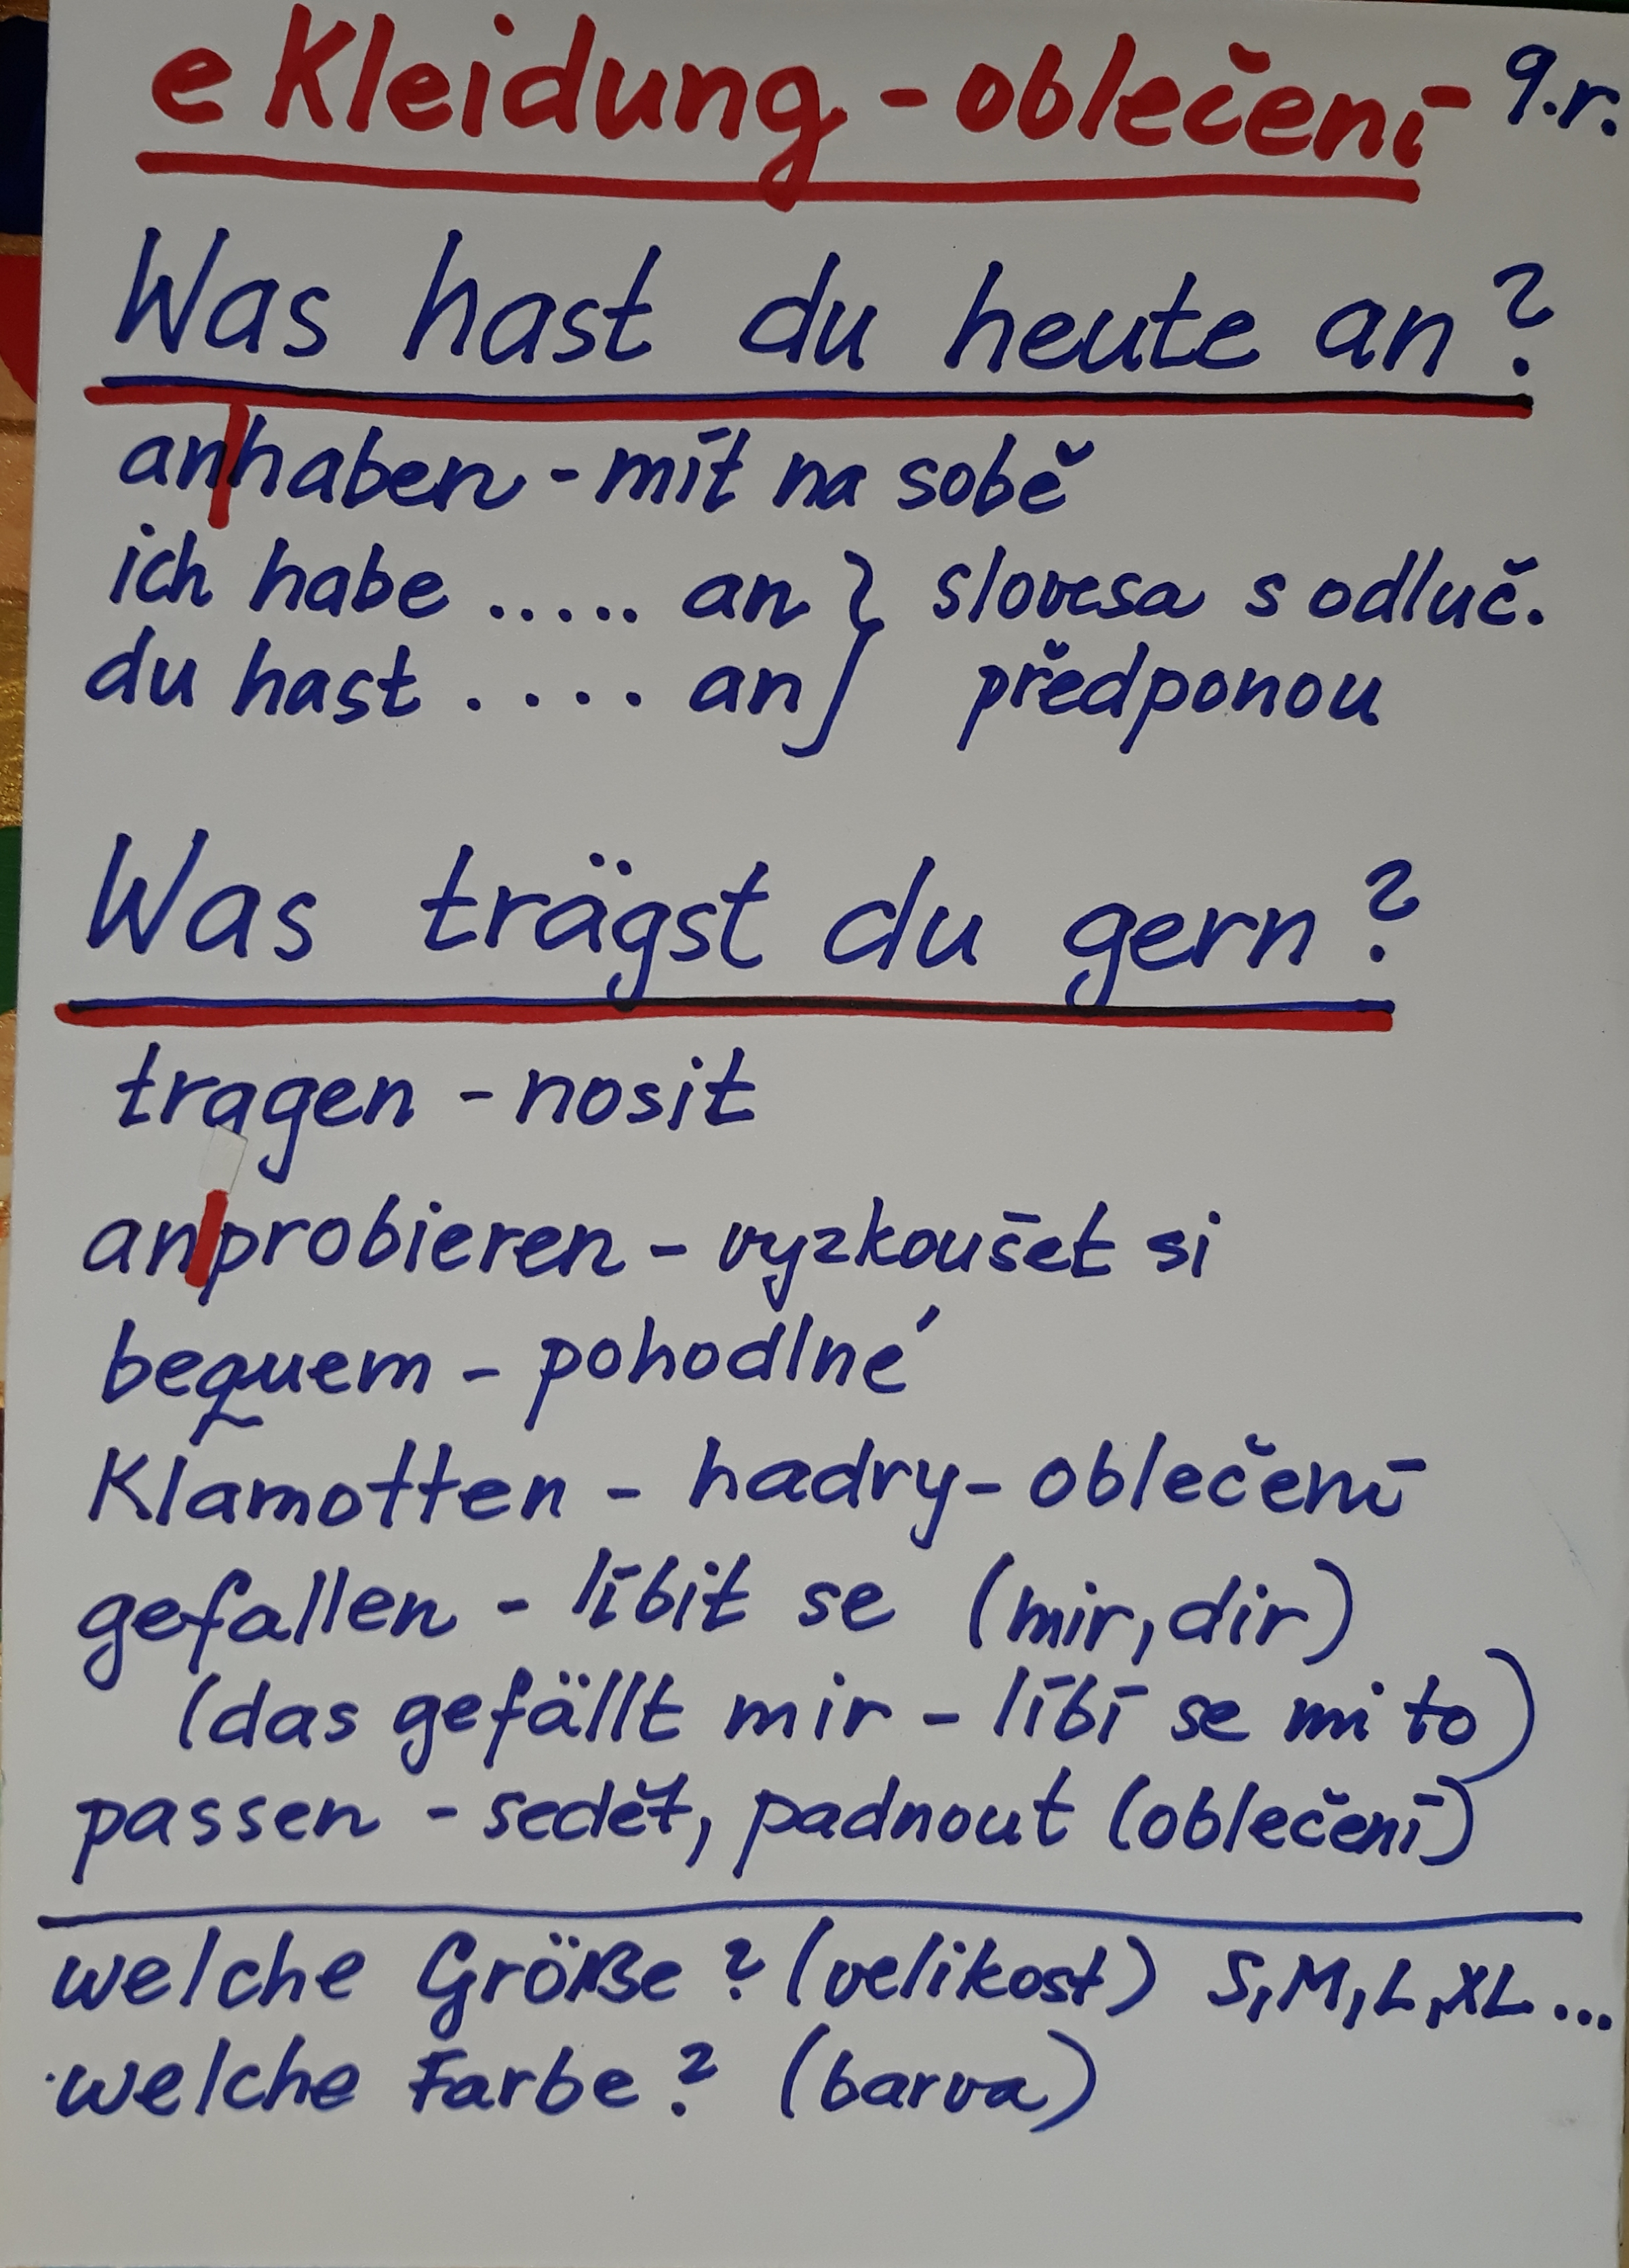 e Kleidung - oblečení 9.r.
Was hast du heute an?
an|haben - mít na sobě
ich habe ..... an } slovesa s odluč.
du hast . . . . an } předponou
Was trägst du gern?
tragen - nosit
an|probieren - vyzkoušet si
bequem - pohodlné
Klamotten - hadry - oblečení
gefallen - líbit se (mir, dir)
(das gefällt mir - líbí se mi to)
passen - sedět, padnout (oblečení)
welche Größe? (velikost) S, M, L, XL ...
welche Farbe? (barva)